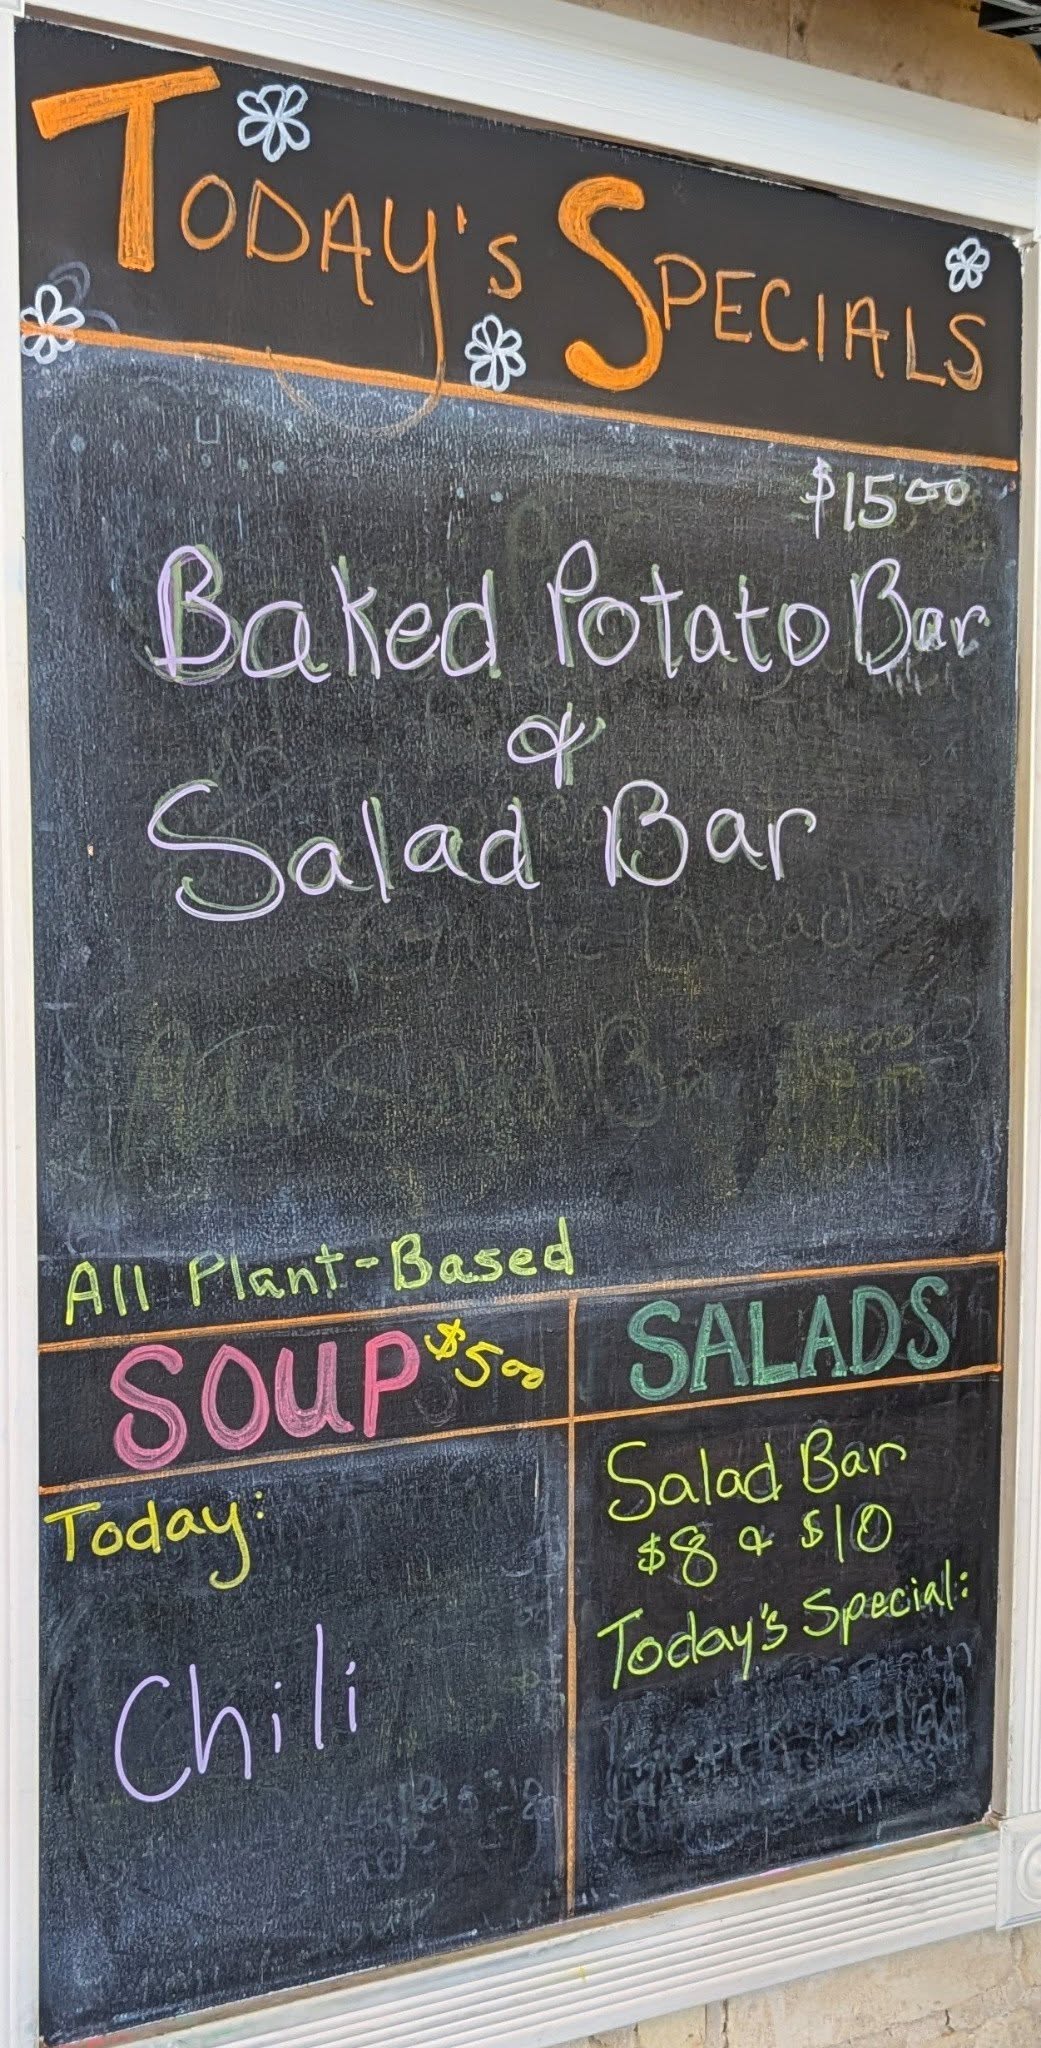 TODAY's SPECIALS
$15.00
Baked Potato Bar
&
Salad Bar
All Plant-Based
SOUP $5.00
Today:
Chili
SALADS
Salad Bar
$8 & $10
Today's Special: